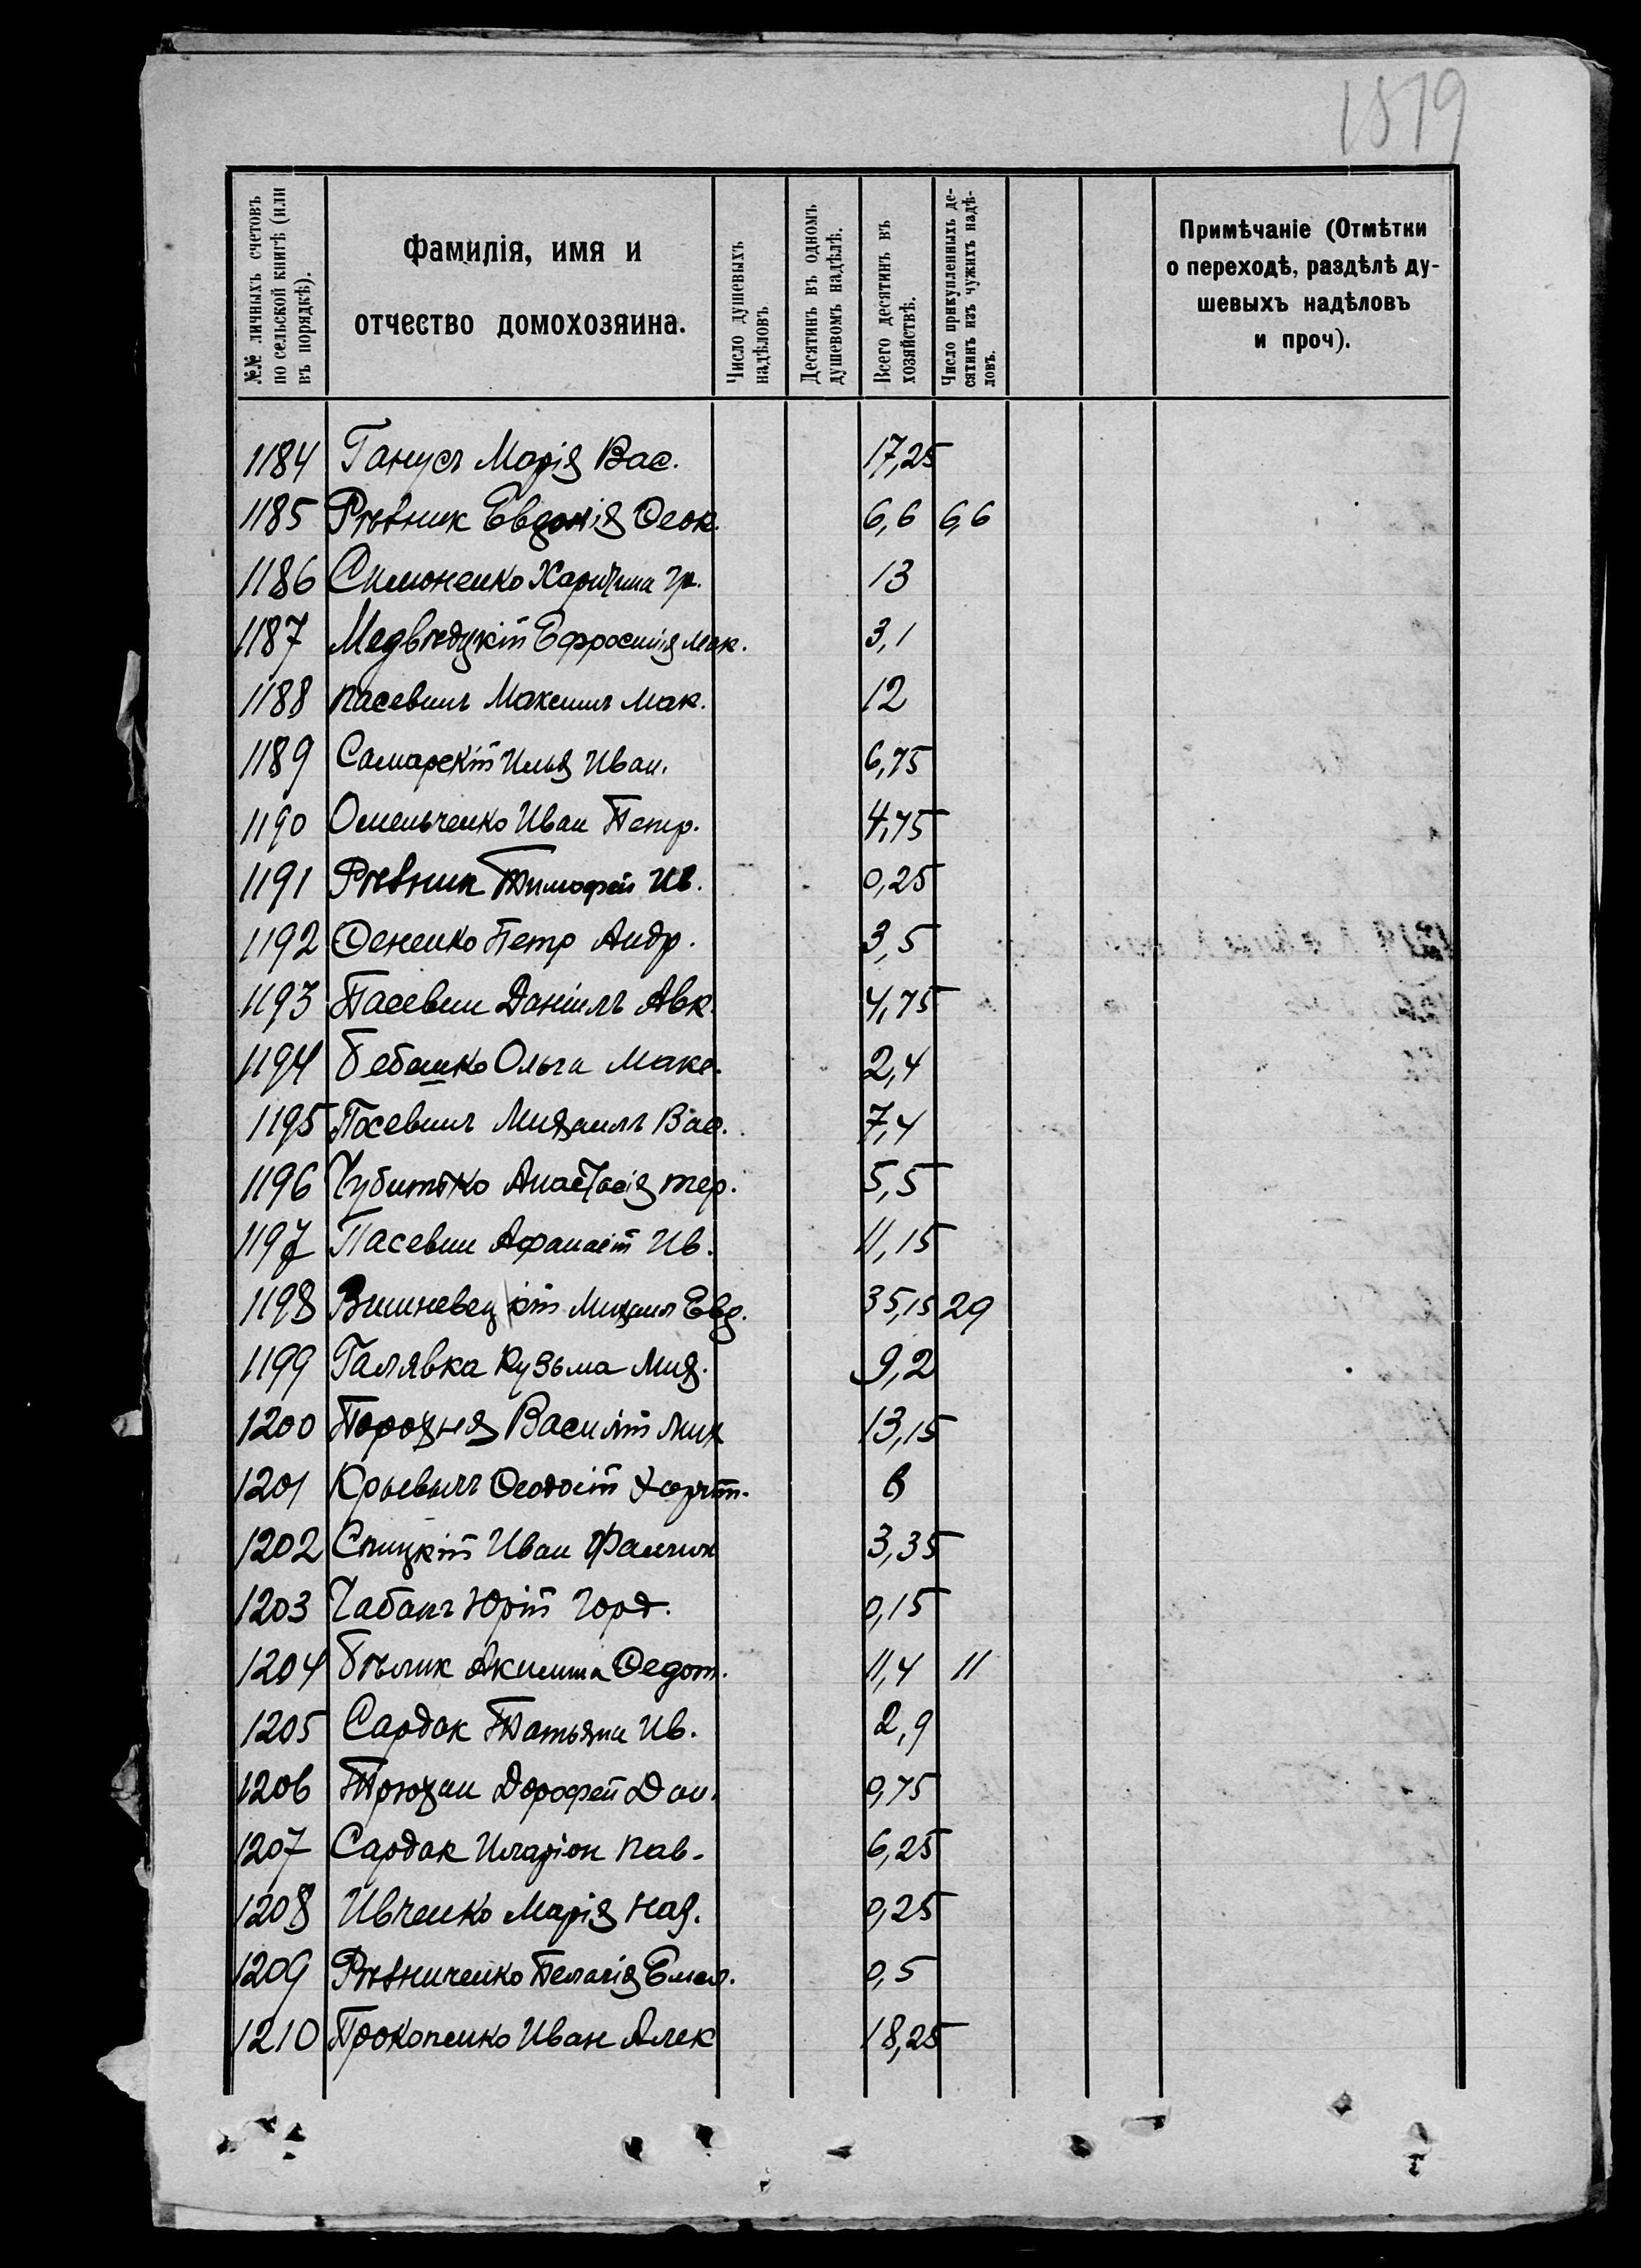 1519
№№ личныхъ счетовъ
по сельской книгѣ (или
въ порядкѣ).
Фамилія, имя и
отчество домохозяина.
Число душевыхъ
надѣловъ.
Десятинъ въ одномъ
душевомъ надѣлѣ.
Всего десятинъ въ
хозяйствѣ.
Число прикупленныхъ де-
сятинъ изъ чужихъ надѣ-
ловъ.
Примѣчаніе (Отмѣтки
о переходѣ, раздѣлѣ ду-
шевыхъ надѣловъ
и проч).
1184 Ганусъ Марія Вас. 17,25
1185 Рѣзник Евдокія Ѳеок. 6,6 6,6
1186 Симоненко Харитина гр. 13
1187 Медвѣдцкій Ефросинія Мак. 3,1
1188 Пасевинъ Максимъ Мак. 12
1189 Самарскій Илья Иван. 6,75
1190 Омельченко Иван Петр. 4,75
1191 Рѣзник Тимофей Ив. 0,25
1192 Ѳененко Петр Андр. 3,5
1193 Пасевин Даніилъ Авк. 4,75
1194 Бебешко Ольга Макс. 2,4
1195 Посевинъ Михаилъ Вас. 7,4
1196 Чубитько Анастасія тер. 5,5
1197 Пасевин Афанасій Ив. 11,15
1198 Вишневецкій Михаил Евд. 35,15 29
1199 Галявка Кузьма Мих. 9,2
1200 Порохня Василій Мих 13,15
1201 Ѳеодосій 6
1202 Спицкій Иван 3,35
1203 Чабанъ Юрій Горд. 0,15
1204 Бѣлик Акилина Ѳедот. 11,4 11
1205 Сардак Татьяна Ив. 2,9
1206 Трюхан Дорофей Дан. 0,75
1207 Сардак Иларіон Пав. 6,25
1208 Ивченко Марія Наз. 0,25
1209 Рѣзниченко Пелагія Емел. 0,5
1210 Прокопенко Иван Алек 18,25